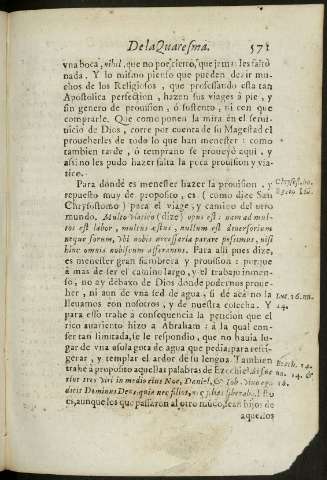 De la Quaresma. 571
vna boca, nihil, que no por cierto, que jamas les faltò
nada. Y lo mismo pienso que pueden dezir mu-
chos de los Religiosos, que professando esta tan
Apostolica perfection, hazen sus viages à pie, y
sin genero de prouision, ò sustento, ni con que
comprarle. Que como ponen la mira en el serui-
uicio de Dios, corre por cuenta de su Magestad el
proueherles de todo lo que han menester: como
tambien tarde, ò temprano se proueyò aqui, y
assi no les pudo hazer falta la poca prouision y via-
tico.
Para donde es menester hazer la prouision, y
repuesto muy de proposito, es (como dize San
Chrysostomo) para el viage, y camino del otro
mundo. Multo viatico (dize) opus est: nam ad mul-
tus est labor, multus æstus, nullum est deuersorium
neque forum, vbi nobis necessaria parare possimus, nisi
hinc omnia nobiscum afferamus. Para alli pues dize,
es menester gran sombrera y prouision: porque
à mas de ser el camino largo, y el trabajo inmen-
so, no ay debaxo de Dios donde podernos proue-
her, ni aun de vna sed de agua, si de acà no la
lleuamos con nosotros, y de nuestra cosecha. Y
para esso trahe a consequencia la peticion que el
rico auariento hizo a Abraham: à la qual con-
ser tan limitada, se le respondio, que no hauia lu-
gar de vna sola gota de agua que pedia, para refri-
gerar, y templar el ardor de su lengua. Tambien
trahe à proposito aquellas palabras de Ezechiel:
dicit Dominus Deus, quia nec filios, nec filias
es, aunque los que passaron al otro mũdo, sean hijos de
aquellos
Chrysostomo.
Luc. 16. nu.
24.
Ezech. 14.
nu. 14. &
16.